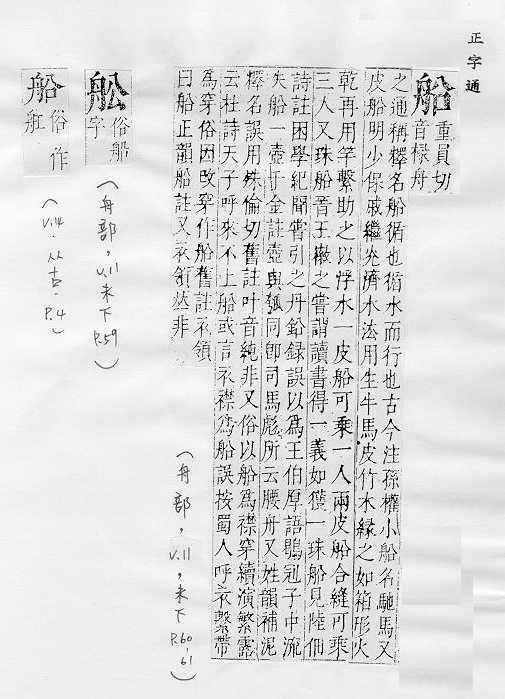 正字通
船 重員切
音椽舟
之通稱釋名船循也循水而行也古今注孫權小船名馳馬又
皮船明少保戚繼光濟水法用生牛馬皮竹木緣之如箱形火
乾再用竿繫助之以浮水一皮船可乘一人兩皮船合縫可乘
三人又珠船晉王徽之嘗謂讀書得一義如獲一珠船見陸佃
詩註困學紀聞嘗引之丹鉛錄誤以為王伯厚語鶡冠子中流
失船一壺千金註壺與瓠同卽司馬彪所云腰舟又姓韻補泥
釋名誤用殊倫切舊註叶音純非又俗以船為襟穿續演繁露
云杜詩天子呼來不上船或言衣襟為船誤按蜀人呼衣繫帶
為穿俗因改穿作船舊註衣領
曰船正韻船註又衣領丛非
(舟部,v.11,未下 P.60,61)
舩 俗船
字
(舟部,v.11未下 P.59)
船 俗作
舡
(v.14.从古.P.4)